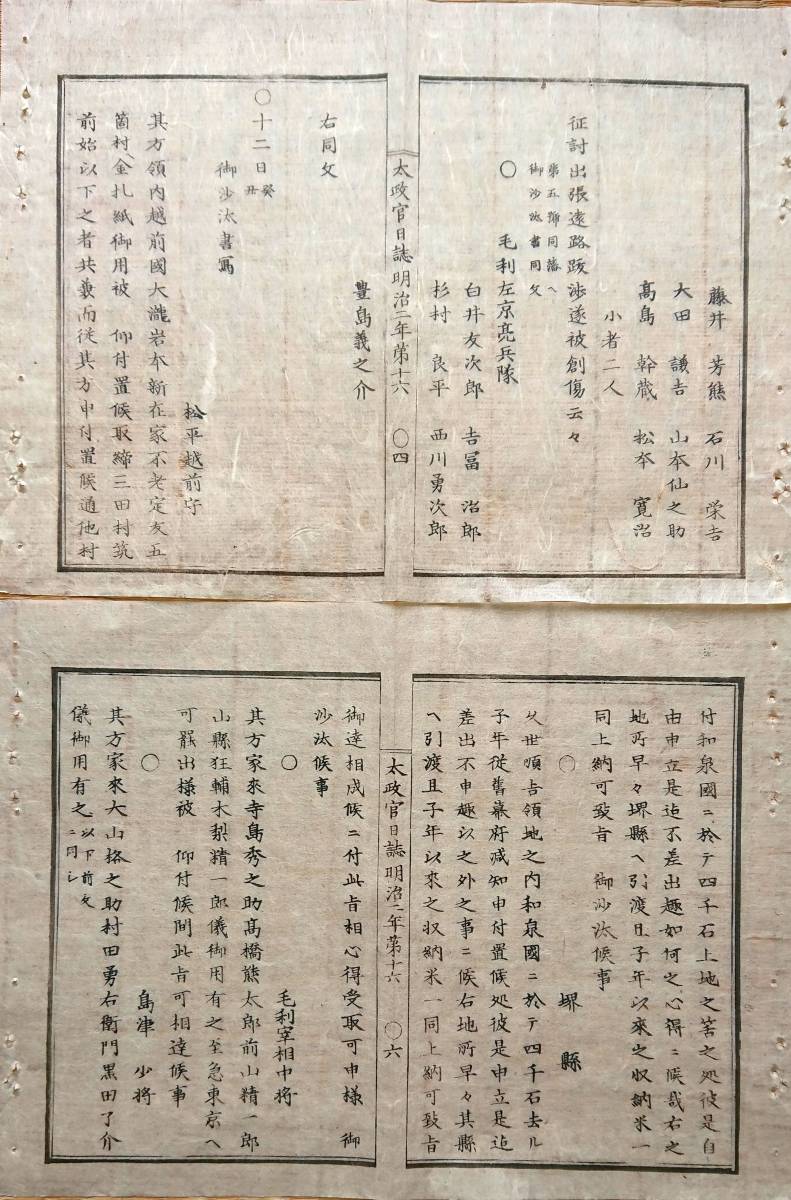 藤井芳熊 石川栄吉
大田謙吉 山本仙之助
髙島幹蔵 松本寛治
小者二人
征討出張遠路跋渉遂被創傷云々
第五號同藩ヘ
御沙汰書同文
○ 毛利左京亮兵隊
白井友次郎 吉冨治郎
杉村良平 西川勇次郎
太政官日誌明治二年第十六 ○四
豊島義之介
右同文
○十二日癸丑
御沙汰書寫
松平越前守
其方領内越前國大瀧岩本新在家不老定友五
箇村ヘ金札紙御用被 仰付置候取締三田村筑
前始以下之者共兼而従其方申付置候通他村
付和泉國ニ於テ四千石上地之筈之処彼是自
由申立是迠不差出趣如何之心得ニ候哉右之
地所早々堺縣ヘ引渡且子年以来之収納米一
同上納可致旨 御沙汰候事
○ 堺縣
久世順吉領地之内和泉國ニ於テ四千石去ル
子年従舊幕府减知申付置候処彼是申立是迠
差出不申趣以之外之事ニ候右地所早々其縣
ヘ引渡且子年以来之収納米一同上納可致旨
太政官日誌明治二年第十六 ○六
御達相成候ニ付此旨相心得受取可申様 御
沙汰候事
○ 毛利宰相中将
其方家来寺島秀之助髙橋熊太郎前山精一郎
山縣狂輔木梨精一郎儀御用有之至急東京ヘ
可罷出様被 仰付候間此旨可相達候事
○ 島津少将
其方家来大山格之助村田勇右衛門黒田了介
儀御用有之以下前文ニ同シ